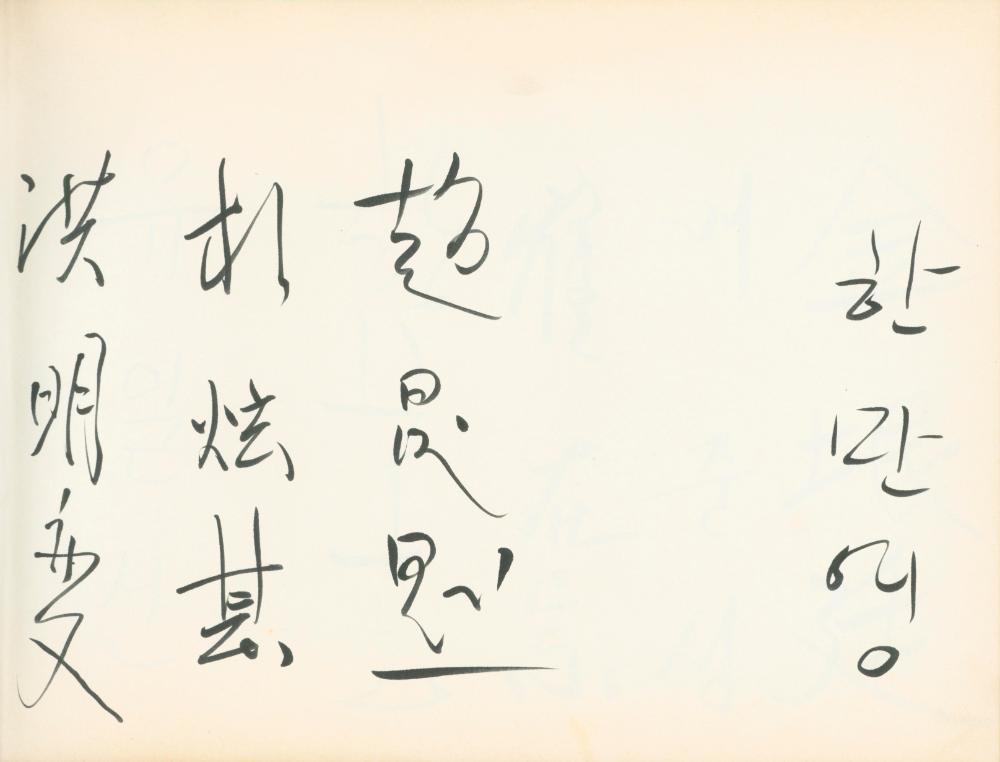 한만영
趙晟黙
朴炫基
洪明燮